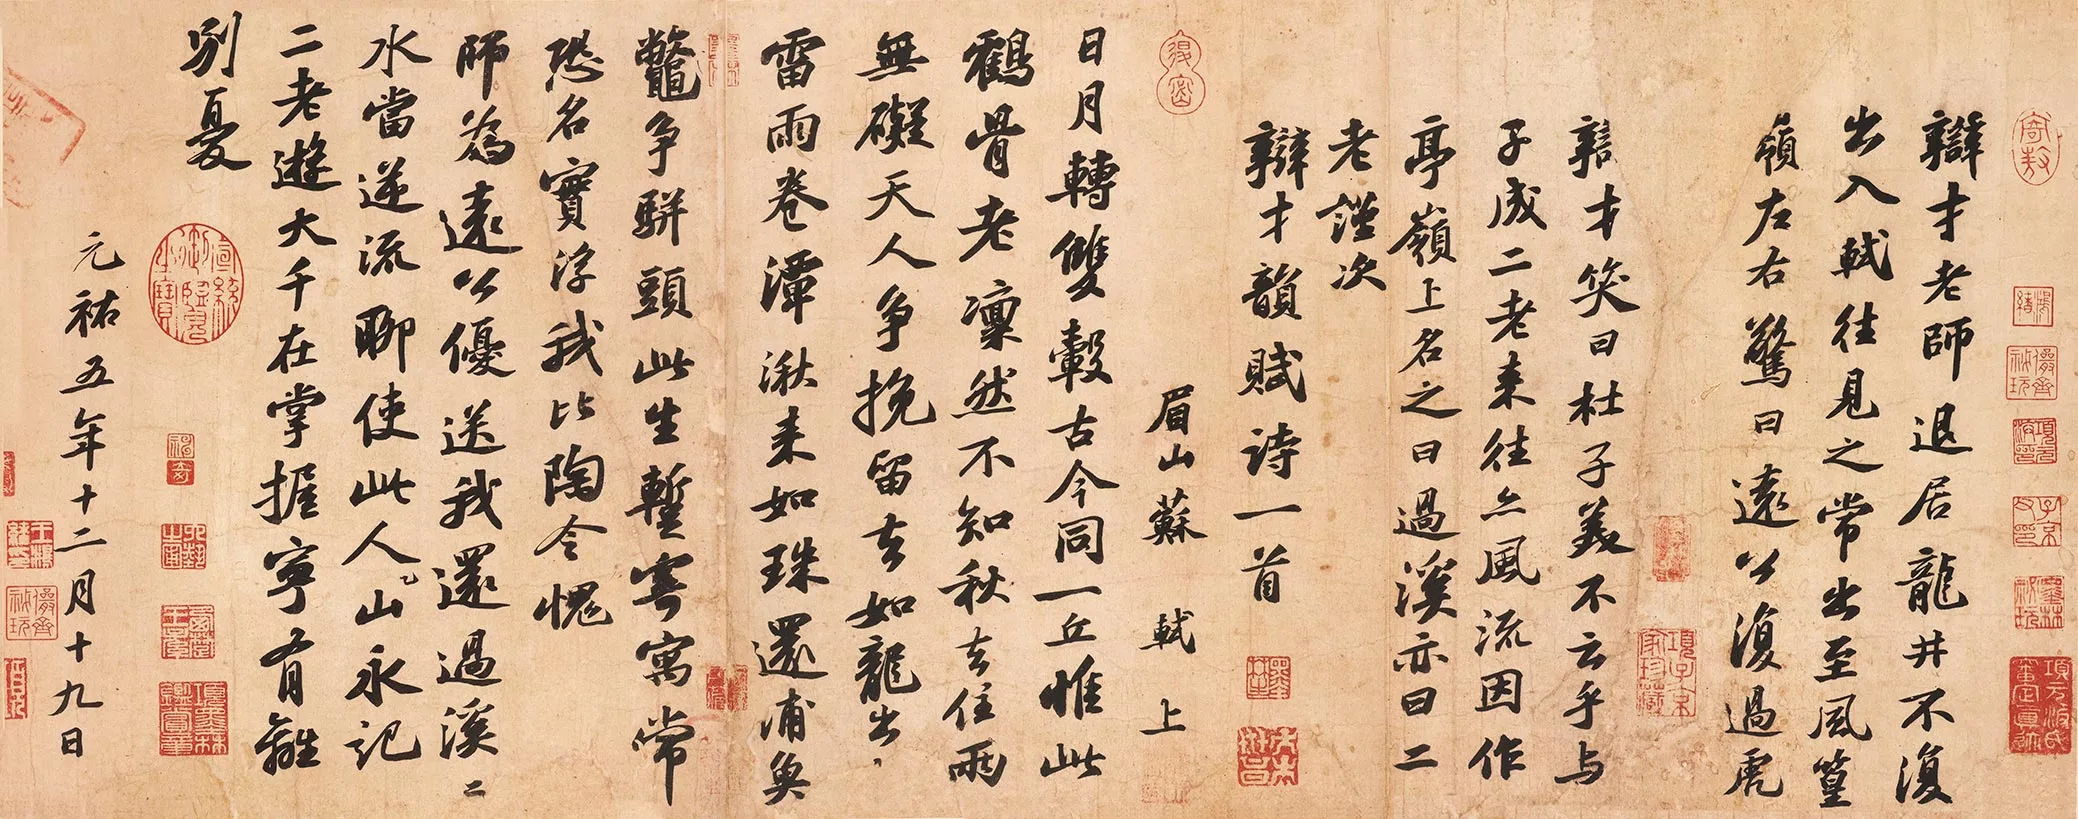 辯才老師退居龍井不復
出入軾往見之常出至風篁
嶺左右驚曰遠公復過虎
辯才笑曰杜子美不云乎与
子成二老来往亦風流因作
亭嶺上名之曰過溪亦曰二
老謹次
辯才韻賦詩一首
眉山蘇軾上
日月轉雙轂古今同一丘惟此
鶴骨老凜然不知秋去住兩
無礙天人争挽留去如龍出
雷雨卷潭湫来如珠還浦魚
鼈争駢頭此生暫寄寓常
恐名實浮我比陶令愧
師為遠公優送我還過溪二
水當逆流聊使此人山永記
二老遊大千在掌握寧有離
別憂
元祐五年十二月十九日
項元汴氏審定真跡
項子京家珍藏
項墨林鑑賞章